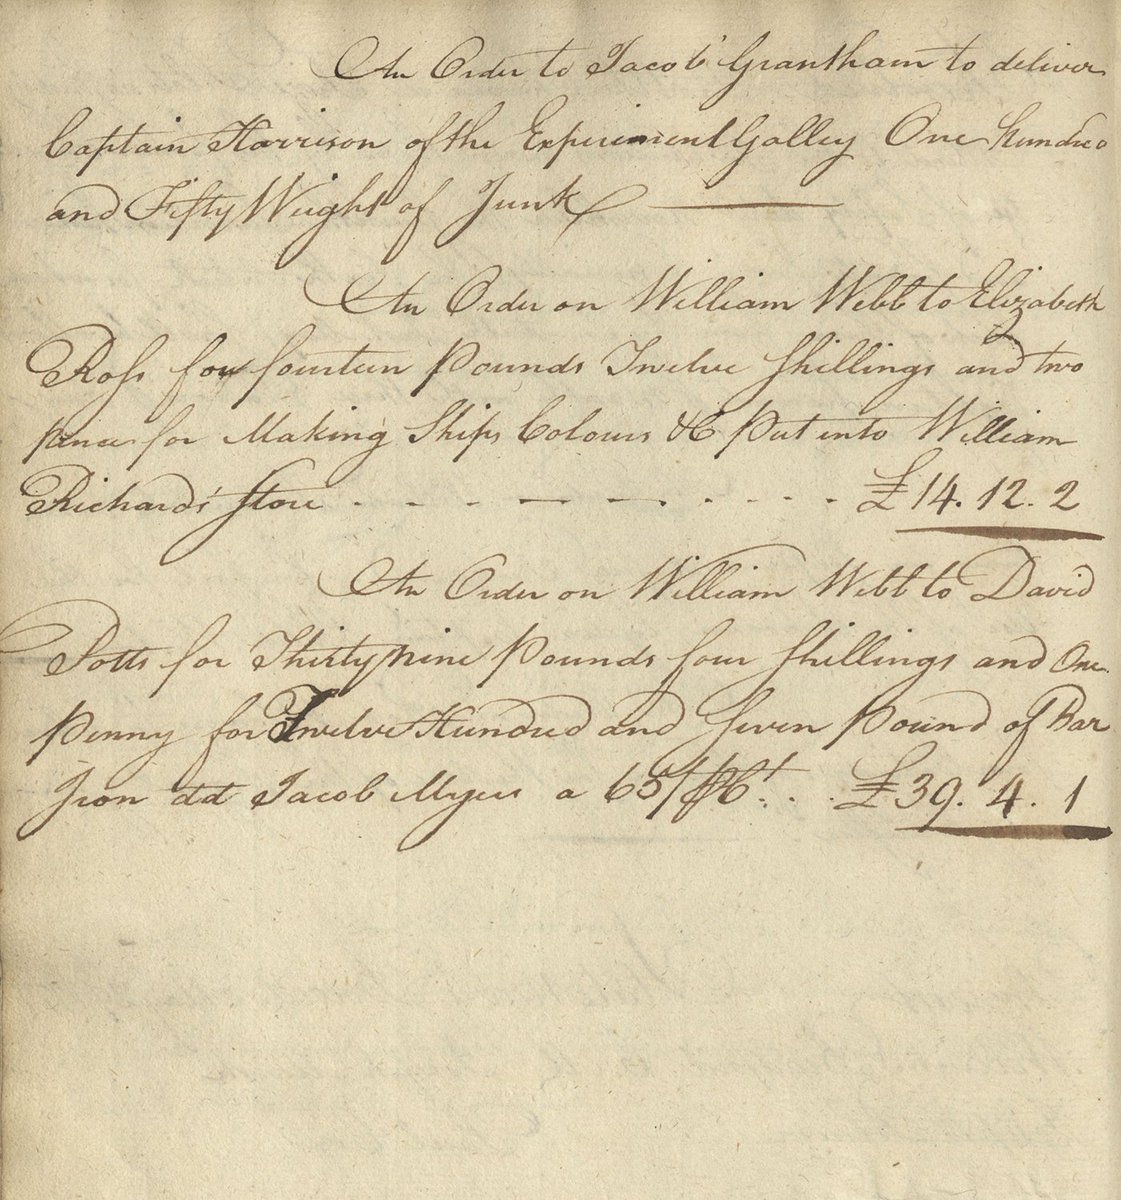 An Order to Jacob Grantham to deliver
Captain Harrison of the Experiment Galley One hundred
and Fifty Weight of Junk
An Order on William Webb to Elizabeth
Ross for fourteen Pounds Twelve Shillings and two
pence for Making Ships Colours &c Put into William
Richards' Store . - . - . - . - . . . . . £14.12.2
An Order on William Webb to David
Potts for Thirty nine Pounds four Shillings and One
penny for Twelve Hundred and Seven Pound of Bar
Iron dd Jacob Myers a 65/ . . . £39.4.1